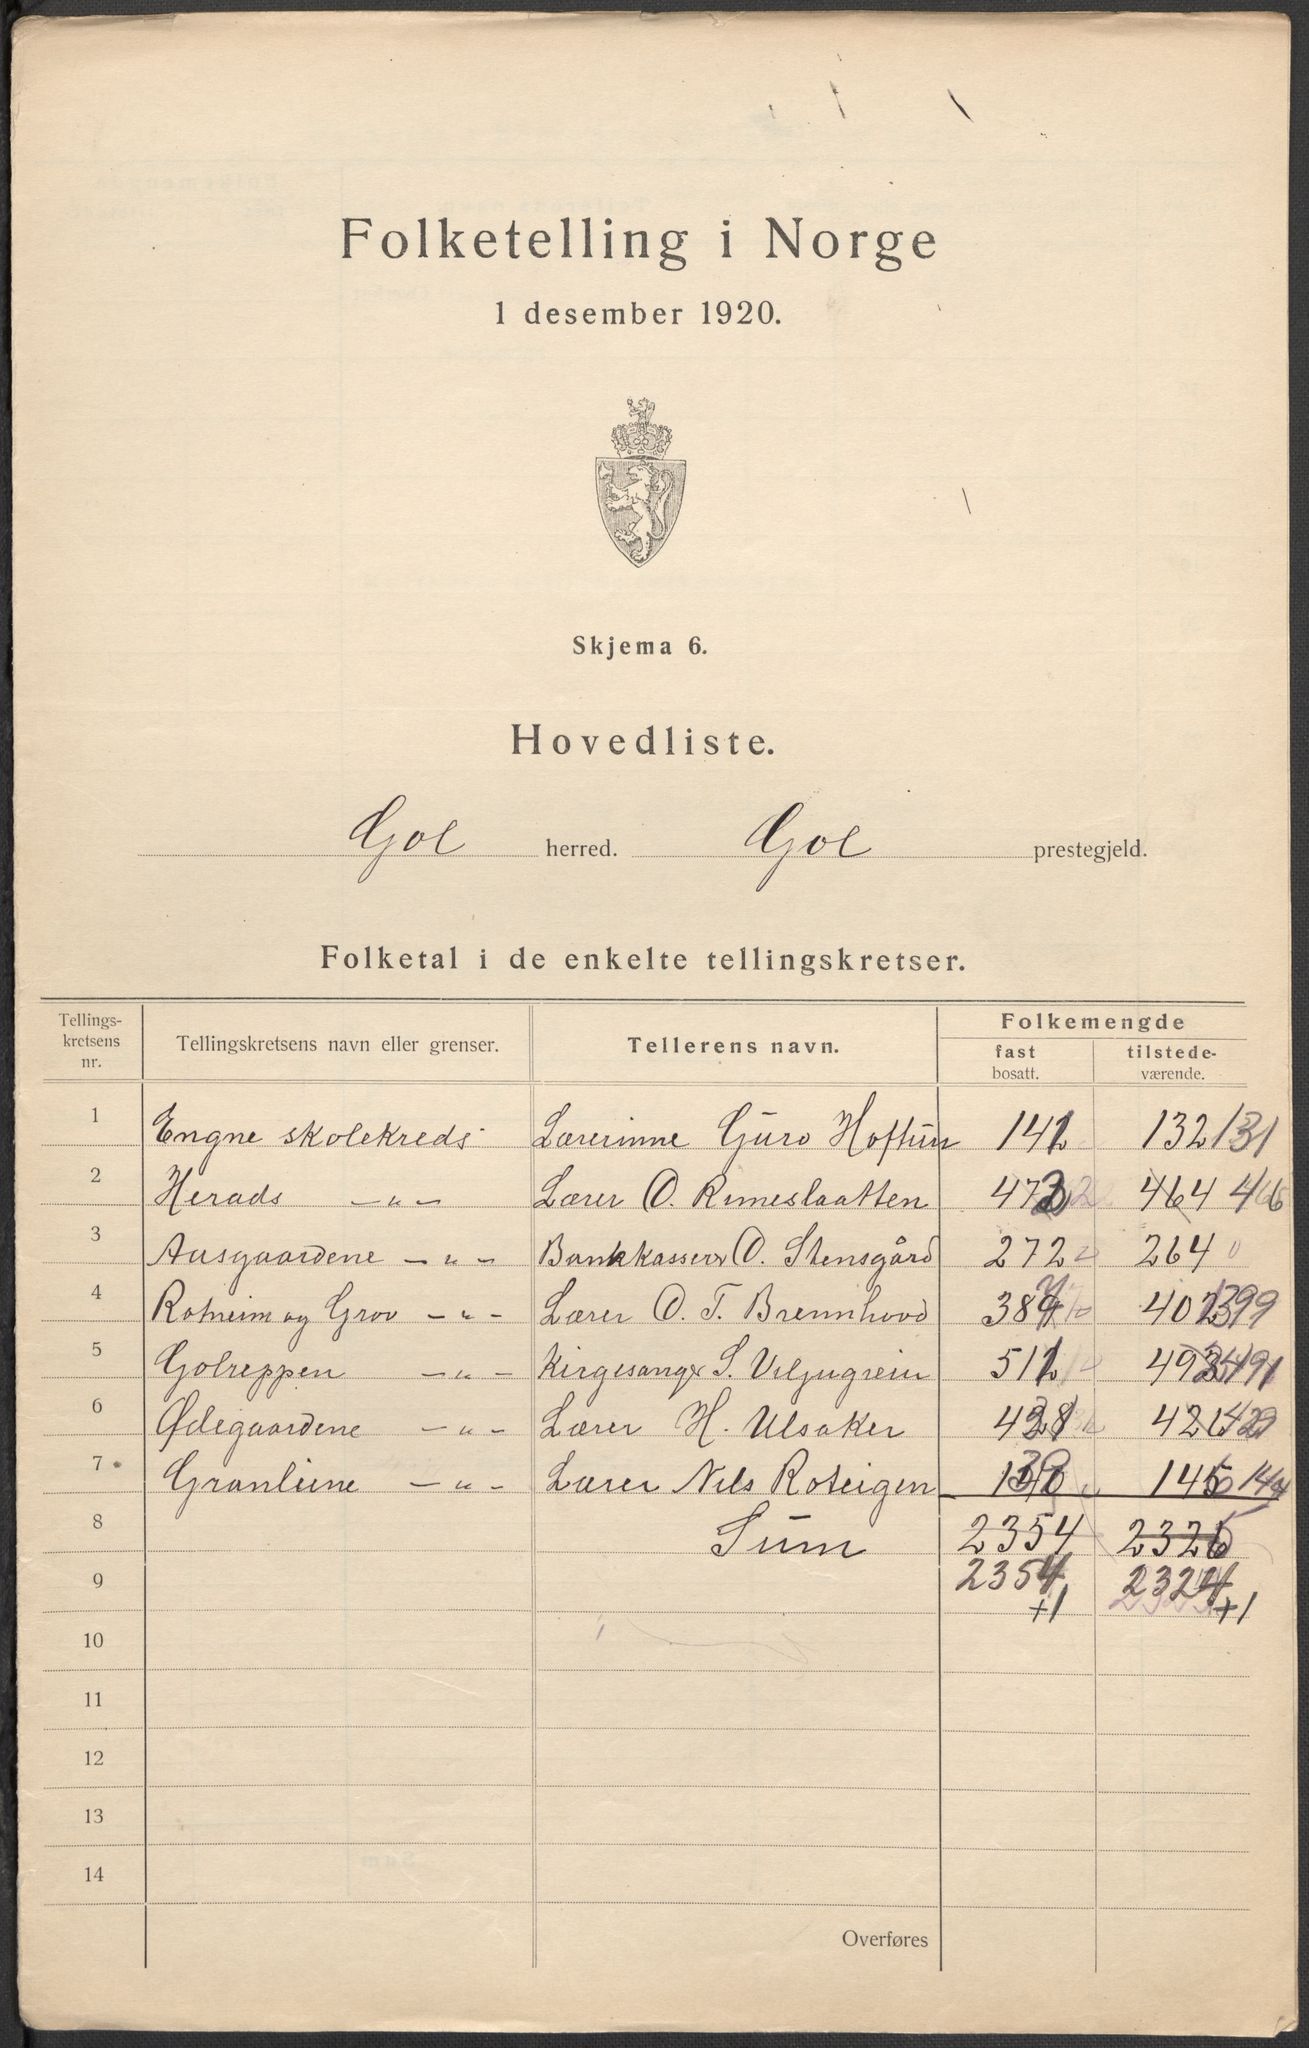 Folketelling i Norge
1 desember 1920.
Skjema 6.
Hovedliste.
Gol herred. Gol prestegjeld.
Folketal i de enkelte tellingskretser.
Tellings-
kretsens
nr.
Tellingskretsens navn eller grenser.
Tellerens navn.
Folkemengde
fast
bosatt.
tilstede-
værende.
1 Engne skolekreds Lærerinne Guro Hoftun 141 132 131
2 Herads -"- Lærer O. Rimeslaatten 464
3 Aasgaardene -"- Bankkasserer O. Stensgård 272 264
4 Rotneim og Grov -"- Lærer O. T. Brennhovd 399
5 Golreppen -"- Kirgesanger S. Veljugrein 491
6 Ødegaardene -"- Lærer H. Ulsaker
7 Granliene -"- Lærer Nils Roteigen
8 Sum 2354
9 2354 2324
+1 +1
10
11
12
13
14
Overføres